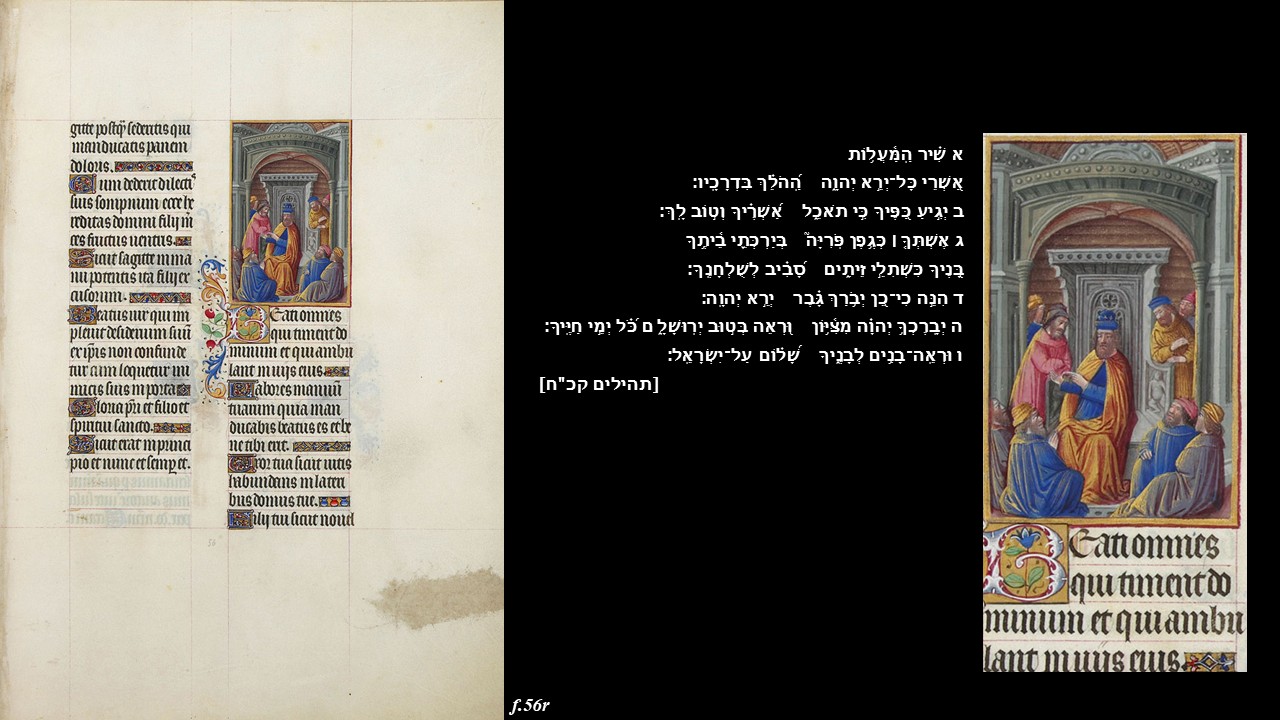 gitte postq̄ sederitis qui
manducatis panem
doloris.
Cum dederit dilectis
suis sompnum ecce he
reditas domini filij m̄
ces fructus uentris.
Sicut sagitte in ma
nu potentis ita filij ex
cusorum.
Beatus uir qui im
pleuit desiderium suū
ex ip̄is non confunde
tur cum loquetur ini
micis suis in porta.
Gloria pr̄i et filio et
spiritui sancto.
Sicut erat in princi
pio et nunc et semp̱ et.
Beati omnes
qui timent do
minum et qui ambu
lant in uijs eius.
Labores manuū
tuarum quia man
ducabis beatus es et be
ne tibi erit.
Uxor tua sicut uitis
habundans in lateri
bus domus tue.
Filij tui sicut nouel
56
f.56r
א שִׁ֗יר הַֽמַּ֫עֲל֥וֹת
אַ֭שְׁרֵי כָּל־יְרֵ֣א יְהוָ֑ה הַ֝הֹלֵ֗ךְ בִּדְרָכָֽיו:
ב יְגִ֣יעַ כַּ֭פֶּיךָ כִּ֣י תֹאכֵ֑ל אַ֝שְׁרֶ֗יךָ וְט֣וֹב לָֽךְ:
ג אֶשְׁתְּךָ֤ ׀ כְּגֶ֥פֶן פֹּרִיָּה֮ בְּיַרְכְּתֵ֪י בֵ֫יתֶ֥ךָ
בָּ֭נֶיךָ כִּשְׁתִלֵ֣י זֵיתִ֑ים סָ֝בִ֗יב לְשֻׁלְחָנֶֽךָ:
ד הִנֵּ֣ה כִי־כֵ֭ן יְבֹ֥רַךְ גָּ֗בֶר יְרֵ֣א יְהוָֽה:
ה יְבָרֶכְךָ֥ יְהוָ֗ה מִצִּ֫יּ֥וֹן וּ֭רְאֵה בְּט֣וּב יְרוּשָׁלִָ֑ם כֹּ֝֗ל יְמֵ֣י חַיֶּֽיךָ:
ו וּרְאֵֽה־בָנִ֥ים לְבָנֶ֑יךָ שָׁ֝ל֗וֹם עַל־יִשְׂרָאֵֽל:
[תהילים קכ"ח]
Beati omnes
qui timent do
minum et qui ambu
lant in uijs eius.